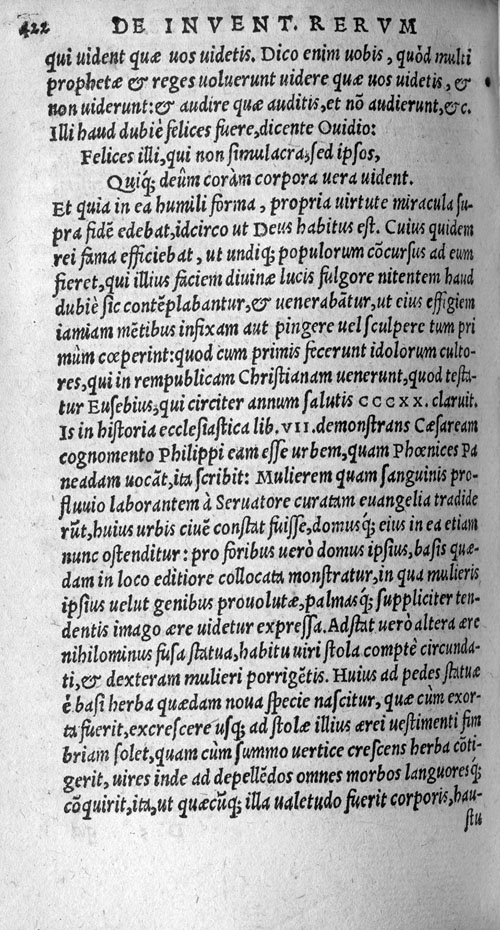 422 DE INVENT. RERVM
qui uident quæ uos uidetis. Dico enim uobis, quòd multi
prophetæ & reges uoluerunt uidere quæ uos uidetis, &
non uiderunt:& audire quæ auditis, et nō audierunt,&c.
Illi haud dubiè felices fuere, dicente Ouidio:
Felices illi, qui non simulacra, sed ipsos,
Quiq́; deûm coràm corpora uera uident.
Et quia in ea humili forma, propria uirtute miracula su-
pra fidē edebat, idcirco ut Deus habitus est. Cuius quidem
rei fama efficiebat, ut undiq; populorum cōcursus ad eum
fieret, qui illius faciem diuinæ lucis fulgore nitentem haud
dubiè sic contēplabantur,& uenerabātur, ut eius effigiem
iamiam mētibus infixam aut pingere uel sculpere tum pri
mùm cœperint: quod cum primis fecerunt idolorum culto-
res, qui in rempublicam Christianam uenerunt, quod testa-
tur Eusebius, qui circiter annum salutis CCCXX. claruit.
Is in historia ecclesiastica lib. VII. demonstrans Cæsaream
cognomento Philippi eam esse urbem, quam Phœnices Pa
neadam uocāt, ita scribit: Mulierem quam sanguinis pro-
fluuio laborantem à Seruatore curatam euangelia tradide
rūt, huius urbis ciuē constat fuisse, domusq́; eius in ea etiam
nunc ostenditur: pro foribus uerò domus ipsius, basis quæ-
dam in loco editiore collocata monstratur, in qua mulieris
ipsius uelut genibus prouolutæ, palmasq́; suppliciter ten-
dentis imago ære uidetur expressa. Adstat uerò altera ære
nihilominus fusa statua, habitu uiri stola comptè circunda-
ti,& dexteram mulieri porrigētis. Huius ad pedes statuæ
ē basi herba quædam noua specie nascitur, quæ cùm exor-
ta fuerit, excrescere usq; ad stolæ illius ærei uestimenti fim
briam solet, quam cùm summo uertice crescens herba cōti-
gerit, uires inde ad depellēdos omnes morbos languoresq́;
cōquirit, ita, ut quæcūq; illa ualetudo fuerit corporis, hau-
stu